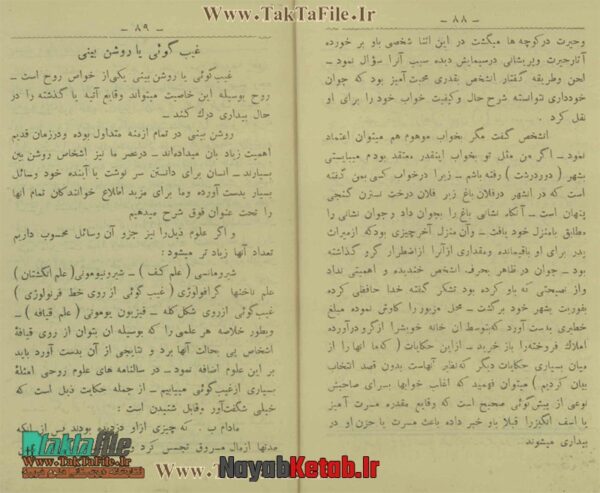 www.TakTaFile.Ir
– ۸۸ –
وحیرت درکوچه ها میگشت در این اثنا شخصی باو بر خورده
آثار حیرت و پریشانی درسیمایش دیده سبب آنرا سؤال نمود –
لحن وطریقه گفتار اشخص بقدری محبت آمیز بود که جوان
خودداری نتوانسته شرح حال وکیفیت خواب خود را برای او
نقل کرد .
اشخص گفت مگر بخواب موهوم هم میتوان اعتماد
نمود – اگر من مثل تو بخواب اینقدر معتقد بودم میبایستی
بشهر ( دوردرشت ) رفته باشم – زیرا درخواب کسی بمن گفته
است که در اینشهر درفلان باغ زیر فلان درخت نسترن گنجی
پنهان است – آنگاه نشانی باغ را بجوان داد وجوان نشانی را
مطابق بامنزل خود یافت – وآن منزل آخرچیزی بودکه ازمیراث
پدر برای او باقیمانده ومقداری ازآنرا ازاضطرار گرو گذاشته
بود – جوان در ظاهر بحرف اشخص خندیده و اهمیتی نداد
واز نصیحتی که باو کرده بود تشکر گفته خدا حافظی کرده
بفوریت بشهر خود برگشت – محل مزبور را کاوش نموده مبلغ
خطیری بدست آورد که بتوسط آن خانه خویش را ازگرو درآورده
املاک فروخته را باز خرید – ازاین حکایات ( که ما آنها را از
میان بسیاری حکایات دیگر که نظیر آنهاست بدون قصد انتخاب
بیان کردیم ) میتوان فهمید که اغلب خوابها بسرای صاحبش
نوعی از پیش گوئی صحیح است که وقایع مقدره مسرت آمیز
یا اسف انگیز را قبلا باو خبر داده باعث مسرت یا حزن او در
بیداری میشوند
www.TakTaFile.Ir
– ۸۹ –
غیب گوئی یا روشن بینی
غیب گوئی یا روشن بینی یکی از خواص روح است –
روح بوسیله این خاصیت میتواند وقایع آتیه یا گذشته را در
حال بیداری درک کند –
روشن بینی در تمام ازمنه متداول بوده ودرزمان قدیم
اهمیت زیاد بآن میداده اند – درعصر ما نیز اشخاص روشن بین
بسیارند – انسان برای دانستن سر نوشت یا آینده خود وسائل
بسیار بدست آورده وما برای مزید اطلاع خوانندگان تمام آنها
را تحت عنوان فوق شرح میدهیم
و اگر علوم ذیل را نیز جزو آن وسائل محسوب داریم
تعداد آنها زیاد تر میشود :
شیرومانسی ( علم کف ) – شیرونومونی ( علم انگشتان )
علم ناخنها گرافولوژی ( غیب گوئی از روی خط فرنولوژی )
غیب گوئی ازروی شکل کله – فیزیون یومونی ( علم قیافه ) –
وبطور خلاصه هر علمی را که بوسیله آن بتوان از روی قیافه
اشخاص پی بحالت آنها برد و نتایجی از آن بدست آورد باید
بر این علوم اضافه نمود – در سالنامه های علوم روحی امثله
بسیاری ازغیب گوئی میبابیم – از جمله حکایت ذیل است که
خیلی شگفت آور وقابل شنیدن است :
مادام ب . که چیزی ازاو دزدیده بودند پس از آنکه
مدتها ازمال مسروق تجسس کرد
Taktafile
www.TakTaFile.Ir
www.TakTaFile.Ir
NayabKetab.Ir